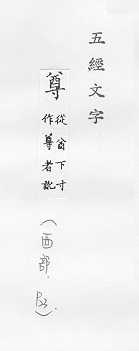 五經文字
尊
從酋下寸
作尊者訛
（酉部，